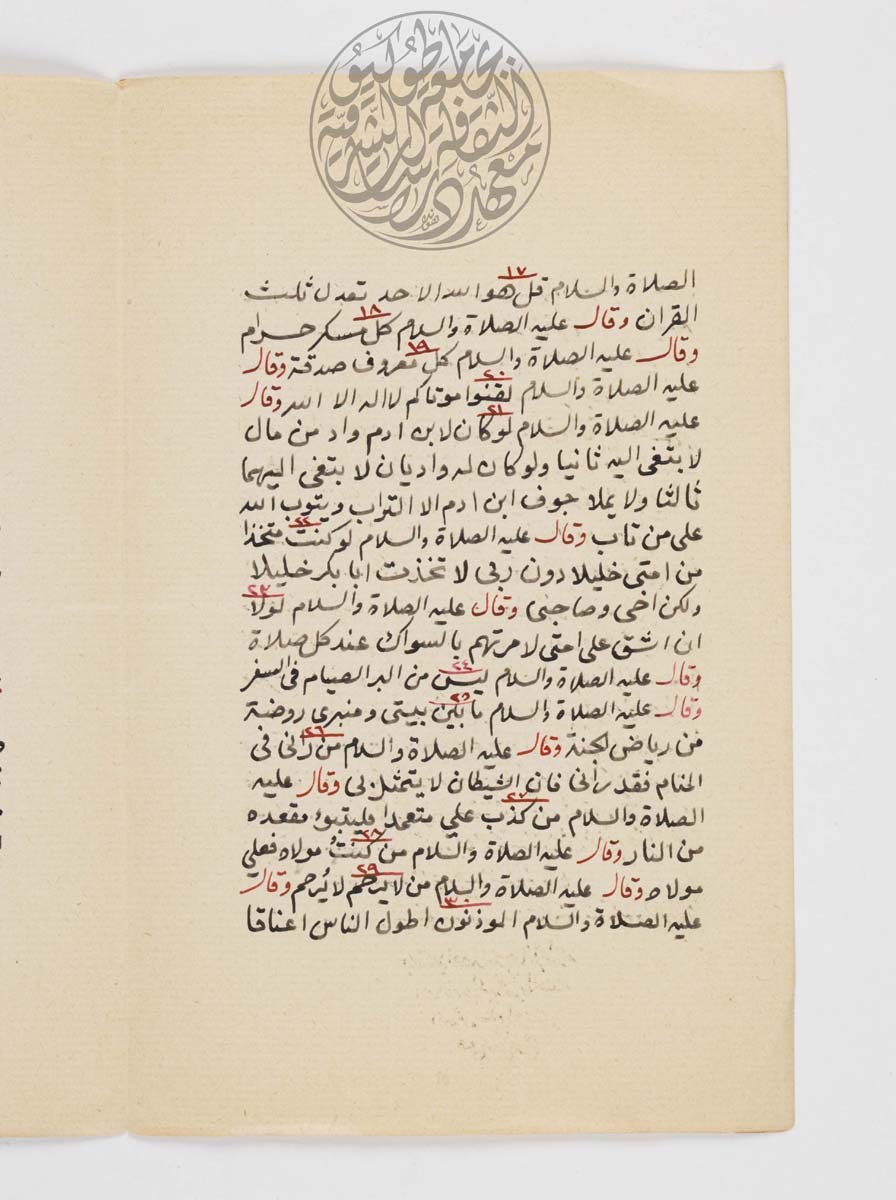 جامعة طوكيو
معهد الثقافة والدراسات الشرقية
١٧
الصلاة والسلام قل هو الله الاحد تعدل ثلث
١٨
القران وقال عليه الصلاة والسلام كل مسكر حرام
١٩
وقال عليه الصلاة والسلام كل معروف صدقة وقال
٢٠
عليه الصلاة والسلام لقنوا موتاكم لا اله الا الله وقال
٢١
عليه الصلاة والسلام لو كان لابن ادم واد من مال
لا بتغى اليه ثانيا ولو كان له واديان لا بتغى اليهما
ثالثا ولا يملا جوف ابن ادم الا التراب ويتوب الله
٢٢
على من تاب وقال عليه الصلاة والسلام لو كنت متخذا
من امتى خليلا دون ربى لا تخذت ابا بكر خليلا
٢٣
ولكن اخى وصاحبى وقال عليه الصلاة والسلام لولا
ان اشق على امتى لامرتهم بالسواك عند كل صلاة
٢٤
وقال عليه الصلاة والسلام ليس من البر الصيام فى السفر
٢٥
وقال عليه الصلاة والسلام ما بين بيتى ومنبرى روضة
٢٦
من رياض لجنة وقال عليه الصلاة والسلام من رانى فى
المنام فقد رانى فان الشيطان لا يتمثل بى وقال عليه
٢٧
الصلاة والسلام من كذب علي متعمدا فليتبوء مقعده
٢٨
من النار وقال عليه الصلاة والسلام من كنتُ مولاه فعلي
٢٩
مولاه وقال عليه الصلاة والسلام من لا يرحم لا يُرحم وقال
٣٠
عليه الصلاة والسلام الموذنون اطول الناس اعناقا